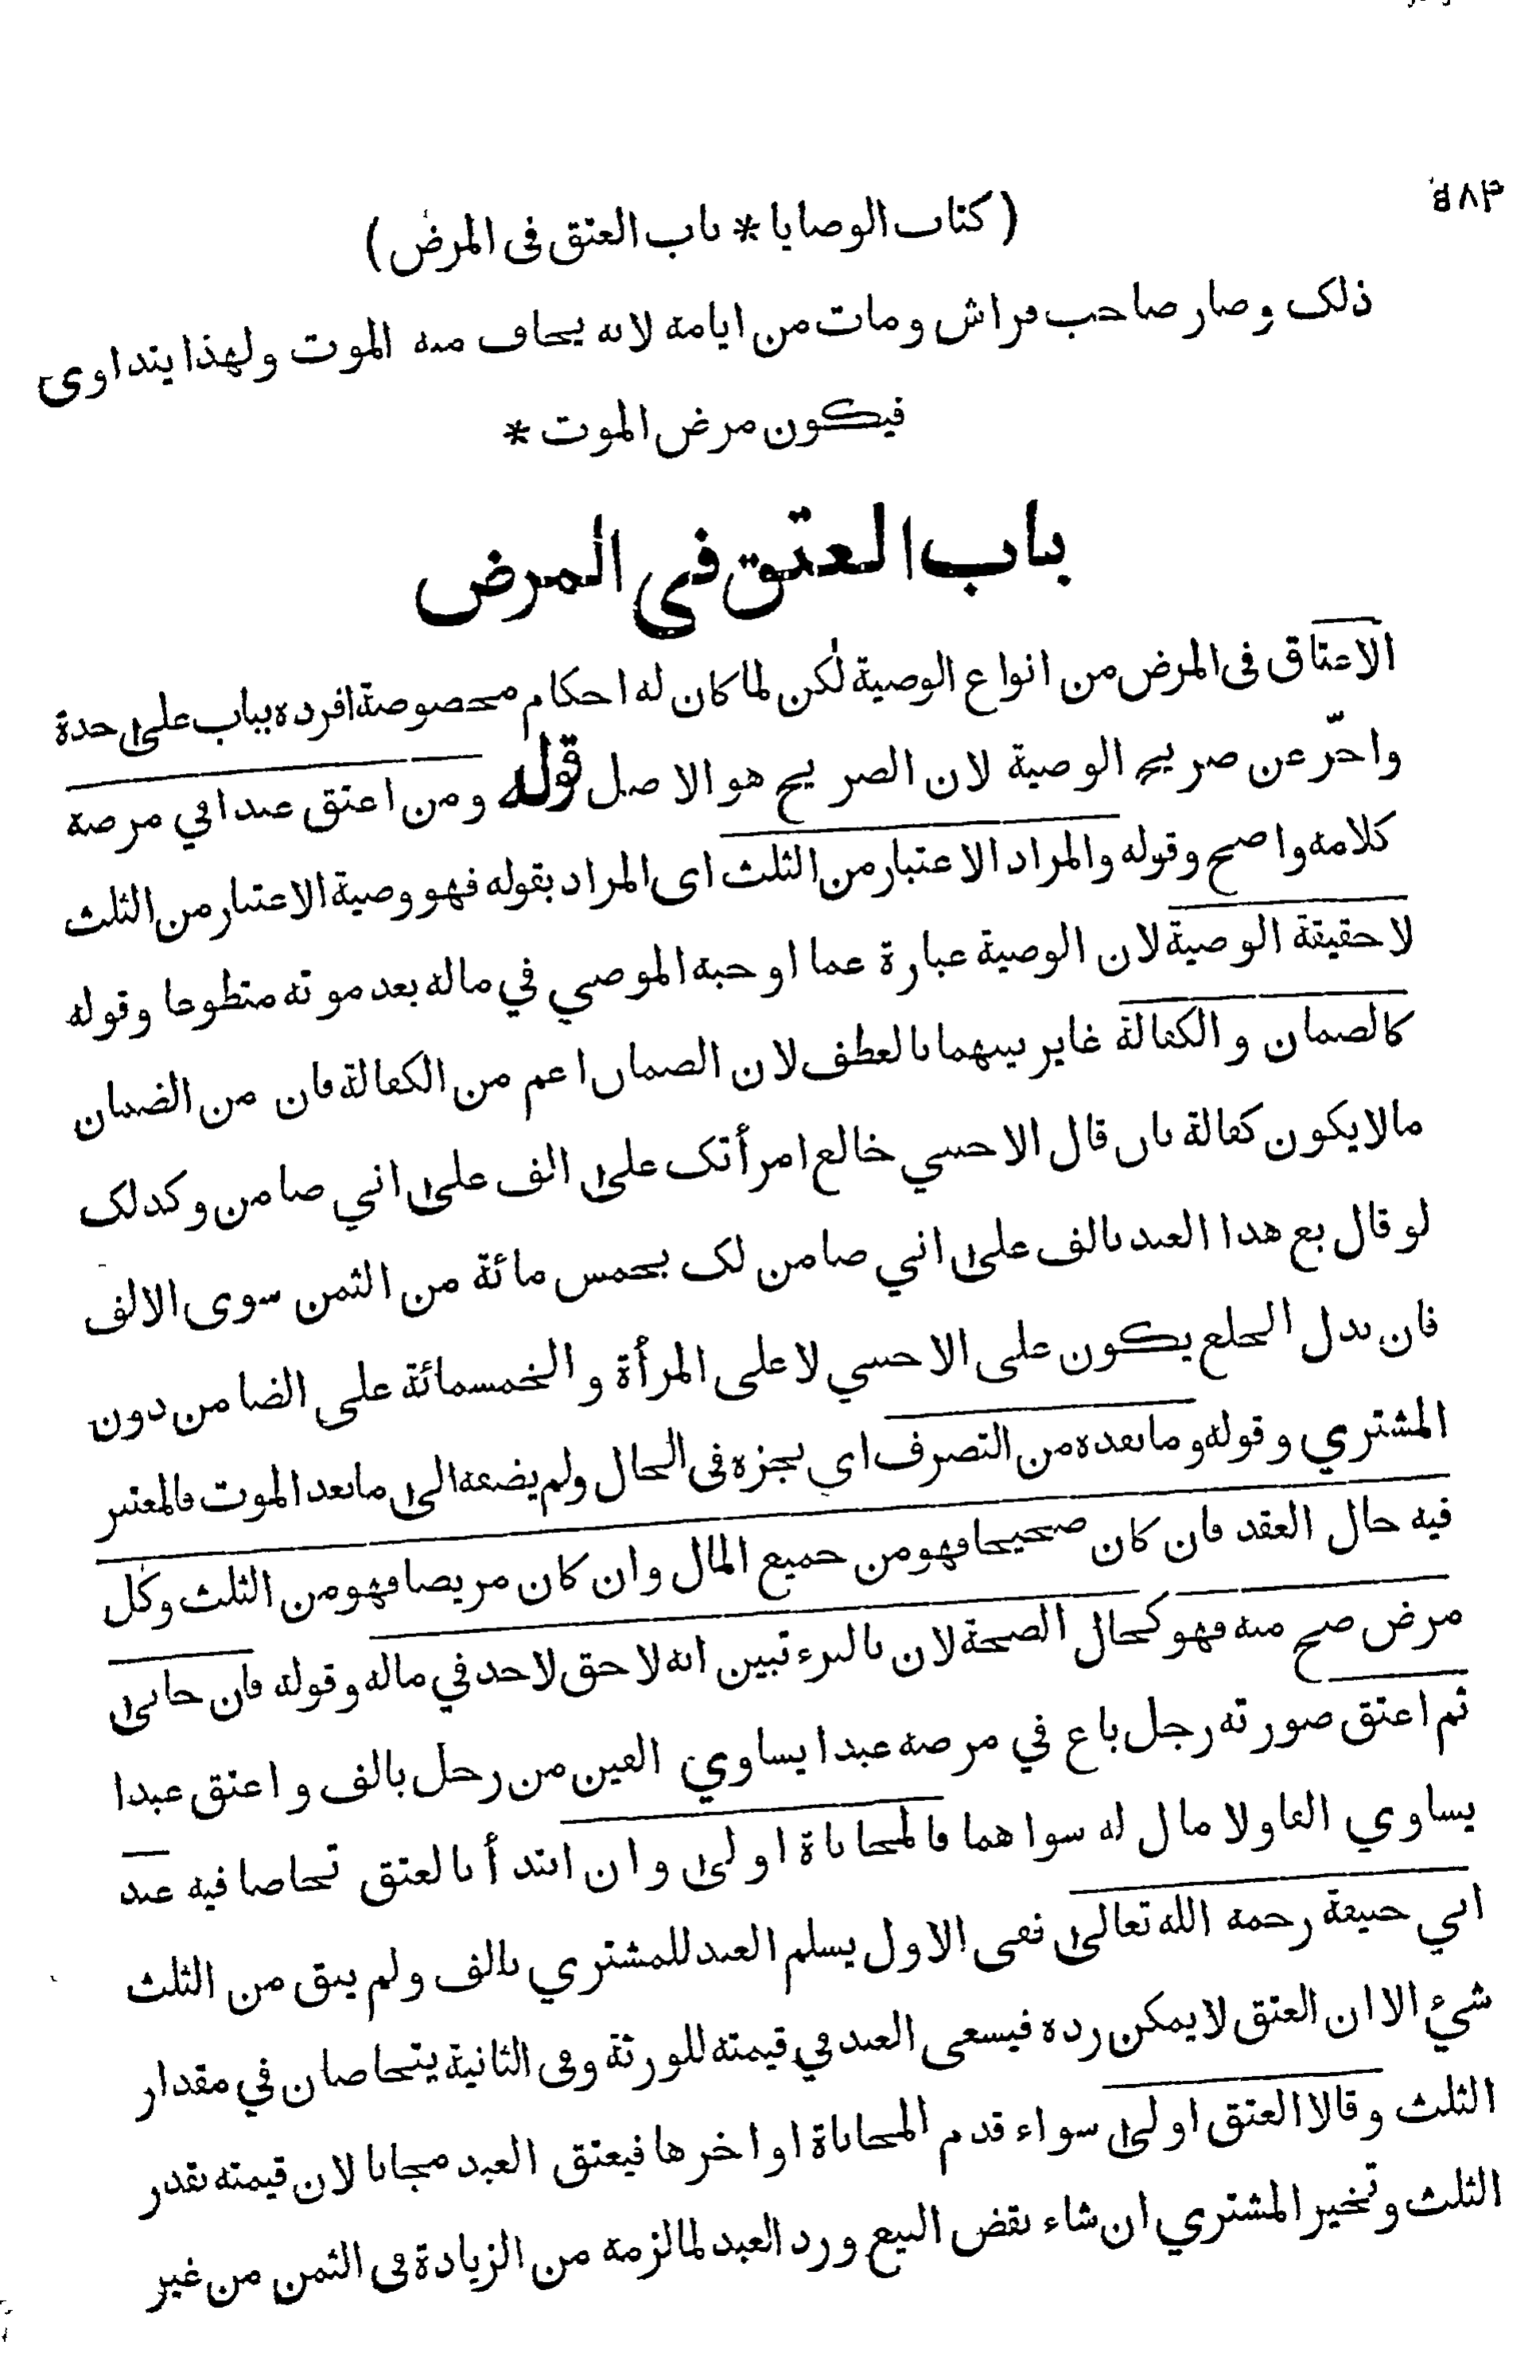 ( كتاب الوصايا * باب العتق فى المرض )
ذلک وصار صاحب فراش ومات من ايامه لانه يخاف منه الموت ولهذا يتداوى
فيكون مرض الموت *
باب العتق في المرض
الاعتاق فى المرض من انواع الوصية لكن لما كان له احكام مخصوصة افرده بباب على حدة
واخّر عن صريح الوصية لان الصريح هو الاصل قوله ومن اعتق عبدا في مرضه
كلامه واضح وقوله والمراد الاعتبار من الثلث اى المراد بقوله فهو وصية الاعتبار من الثلث
لا حقيقة الوصية لان الوصية عبارة عما اوجبه الموصي في ماله بعد موته متطوعا وقوله
كالضمان والكفالة غاير بينهما بالعطف لان الضمان اعم من الكفالة فان من الضمان
مالا يكون كفالة بان قال الاجنبي خالع امرأتک على الف على اني ضامن وكذلک
لو قال بع هذا العبد بالف على اني ضامن لک بخمس مائة من الثمن سوى الالف
فان بدل الخلع يكون على الاجنبي لا على المرأة والخمسمائة على الضامن دون
المشتري وقوله وما بعده من التصرف اي نجزه فى الحال ولم يضفه الى ما بعد الموت فالمعتبر
فيه حال العقد فان كان صحيحا فهو من جميع المال وان كان مريضا فهو من الثلث وكل
مرض صح منه فهو كحال الصحة لان بالبرء تبين انه لا حق لاحد في ماله وقوله فان حابى
ثم اعتق صورته رجل باع في مرضه عبدا يساوي الفين من رجل بالف واعتق عبدا
يساوي الفا ولا مال له سواهما فالمحاباة اولى وان ابتدأ بالعتق تحاصا فيه عند
ابي حنيفة رحمه الله تعالى ففى الاول يسلم العبد للمشتري بالف ولم يبق من الثلث
شيء الا ان العتق لا يمكن رده فيسعى العبد في قيمته للورثة وفى الثانية يتحاصان في مقدار
الثلث وقالا العتق اولى سواء قدم المحاباة او اخرها فيعتق العبد مجانا لان قيمته بقدر
الثلث وتخير المشتري ان شاء نقض البيع ورد العبد لما لزمه من الزيادة فى الثمن من غير